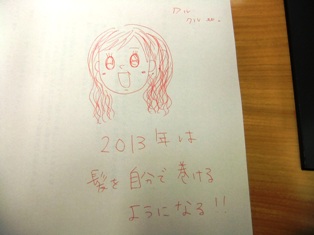 2013年は
髪を自分で巻ける
ようになる!!